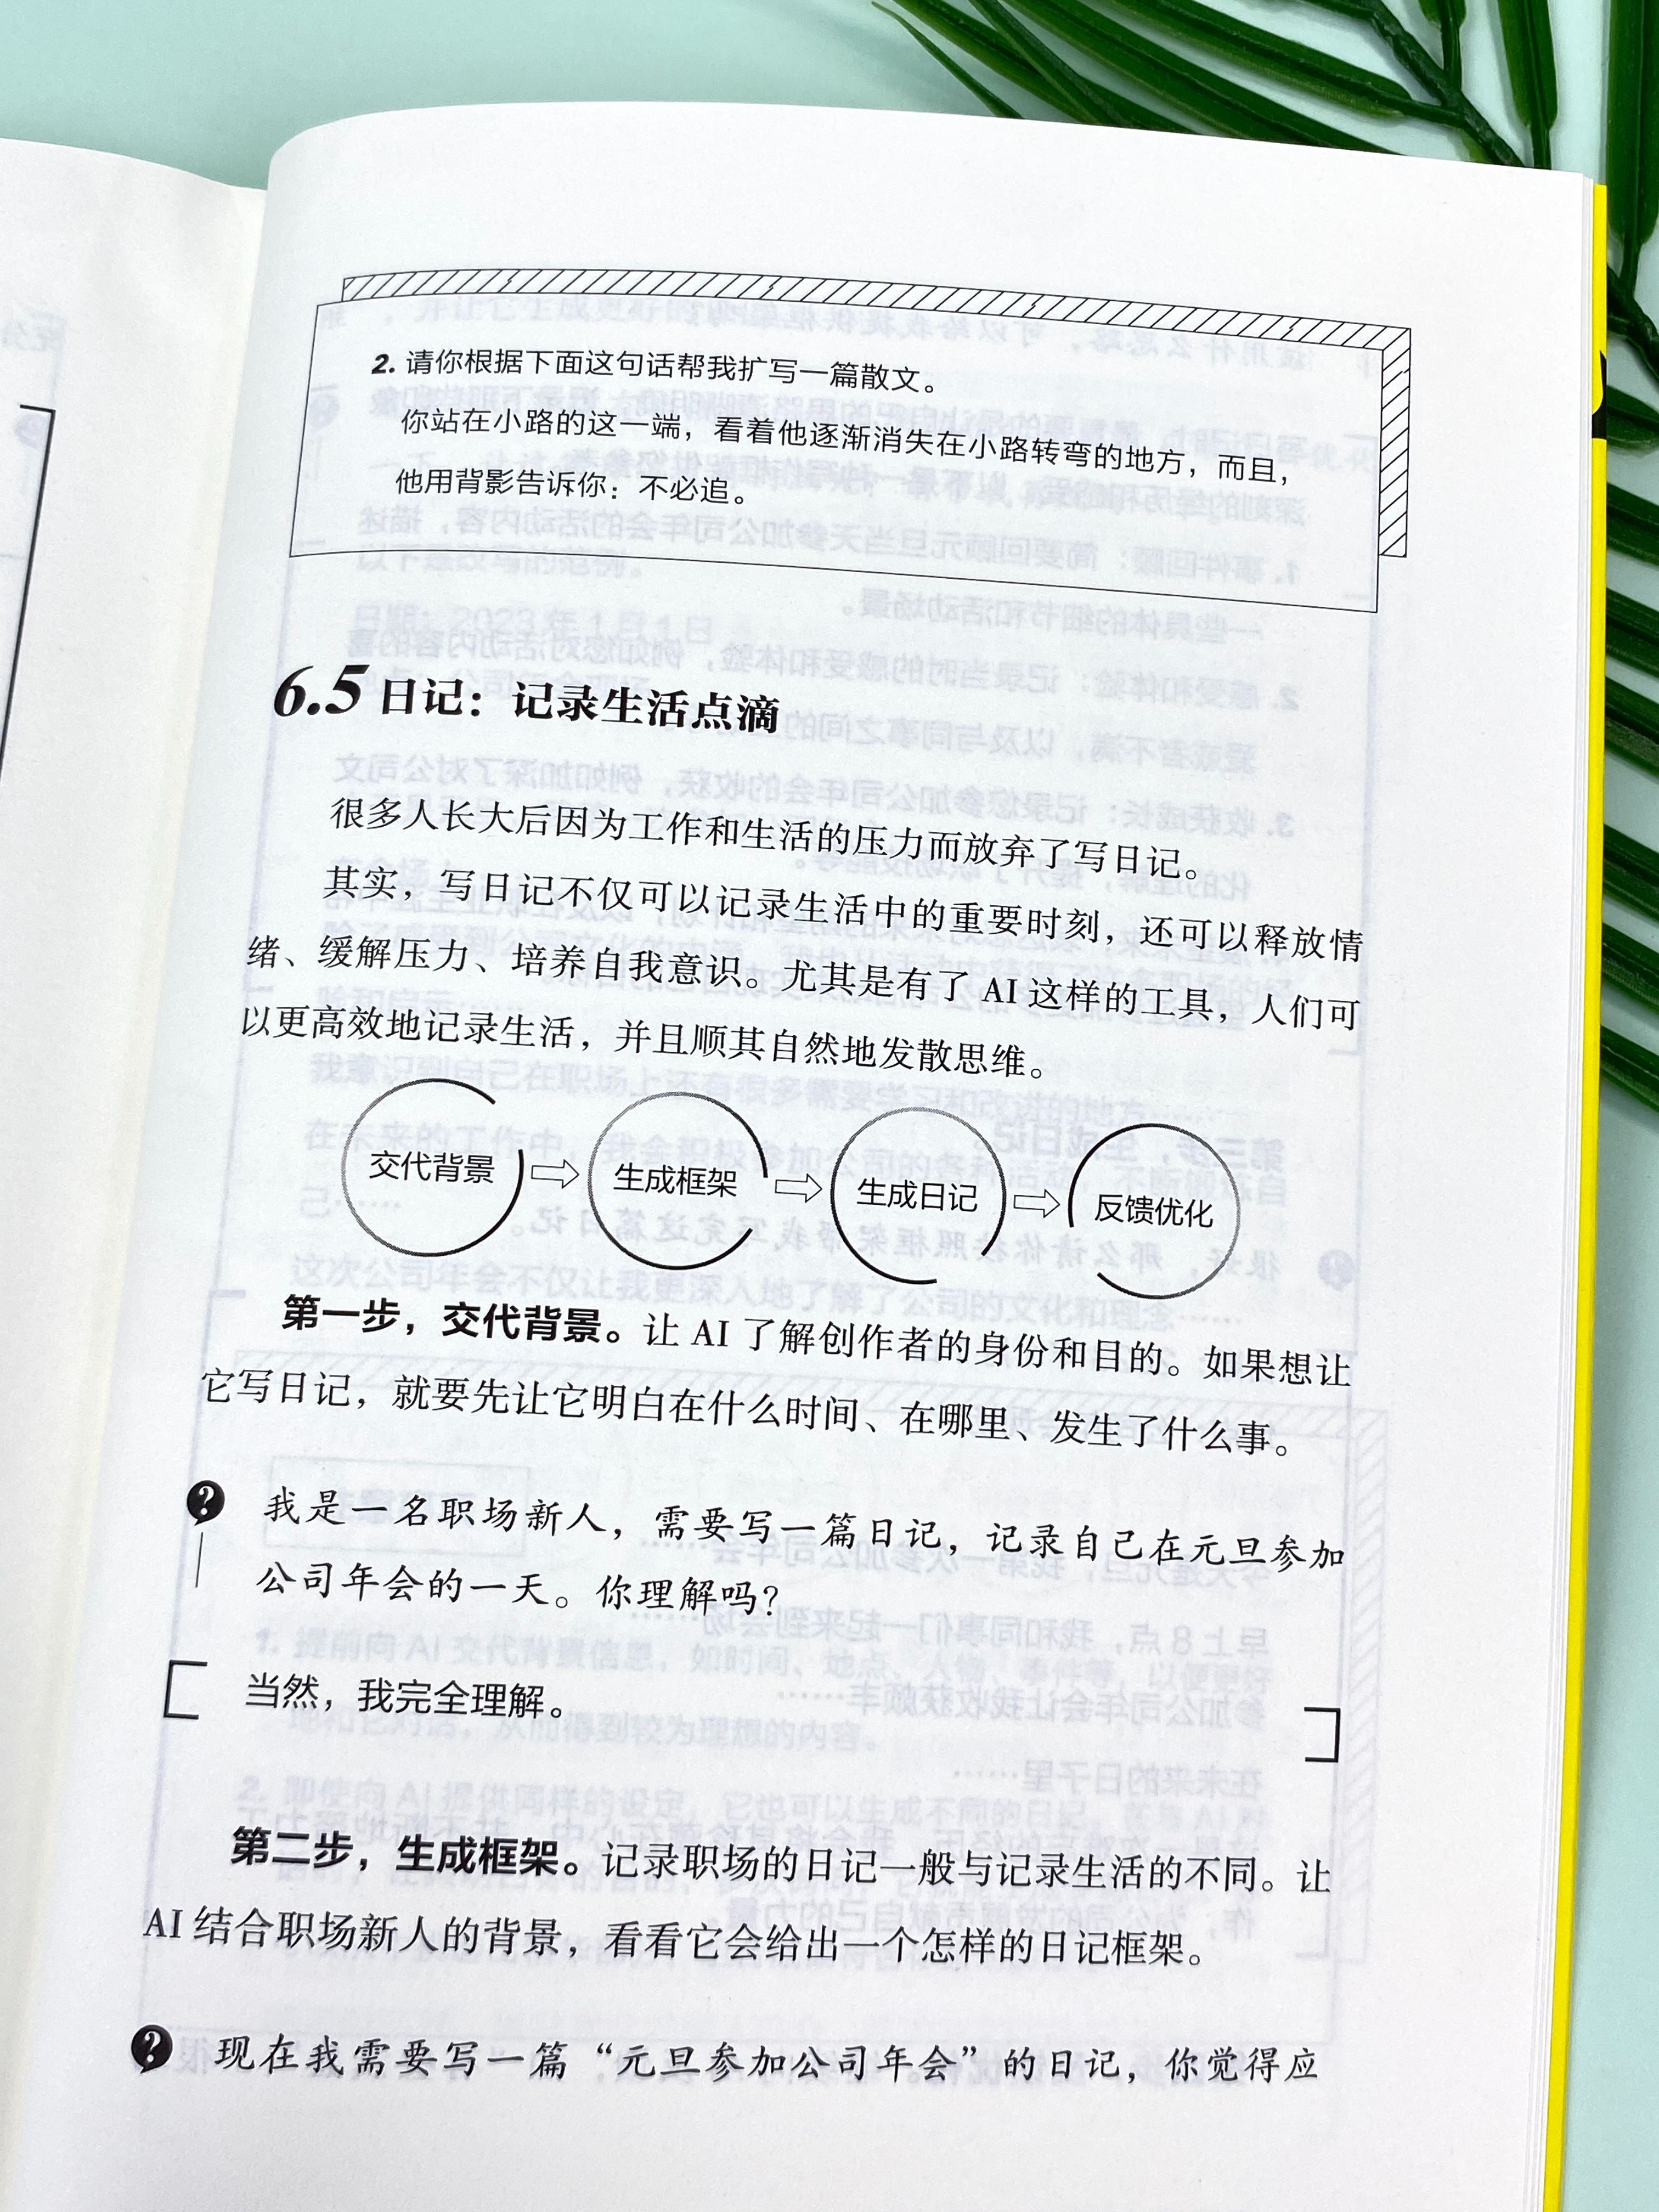 2. 请你根据下面这句话帮我扩写一篇散文。
你站在小路的这一端，看着他逐渐消失在小路转弯的地方，而且，
他用背影告诉你：不必追。
6.5 日记：记录生活点滴
很多人长大后因为工作和生活的压力而放弃了写日记。
其实，写日记不仅可以记录生活中的重要时刻，还可以释放情
绪、缓解压力、培养自我意识。尤其是有了 AI 这样的工具，人们可
以更高效地记录生活，并且顺其自然地发散思维。
交代背景
生成框架
生成日记
反馈优化
第一步，交代背景。让 AI 了解创作者的身份和目的。如果想让
它写日记，就要先让它明白在什么时间、在哪里、发生了什么事。
? 我是一名职场新人，需要写一篇日记，记录自己在元旦参加
公司年会的一天。你理解吗？
当然，我完全理解。
第二步，生成框架。记录职场的日记一般与记录生活的不同。让
AI 结合职场新人的背景，看看它会给出一个怎样的日记框架。
? 现在我需要写一篇“元旦参加公司年会”的日记，你觉得应